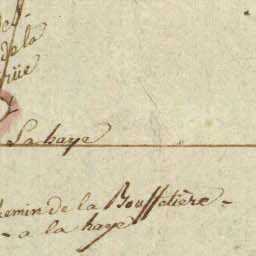 de la
La haye
chemin de la Bouffetière -
- a la haye